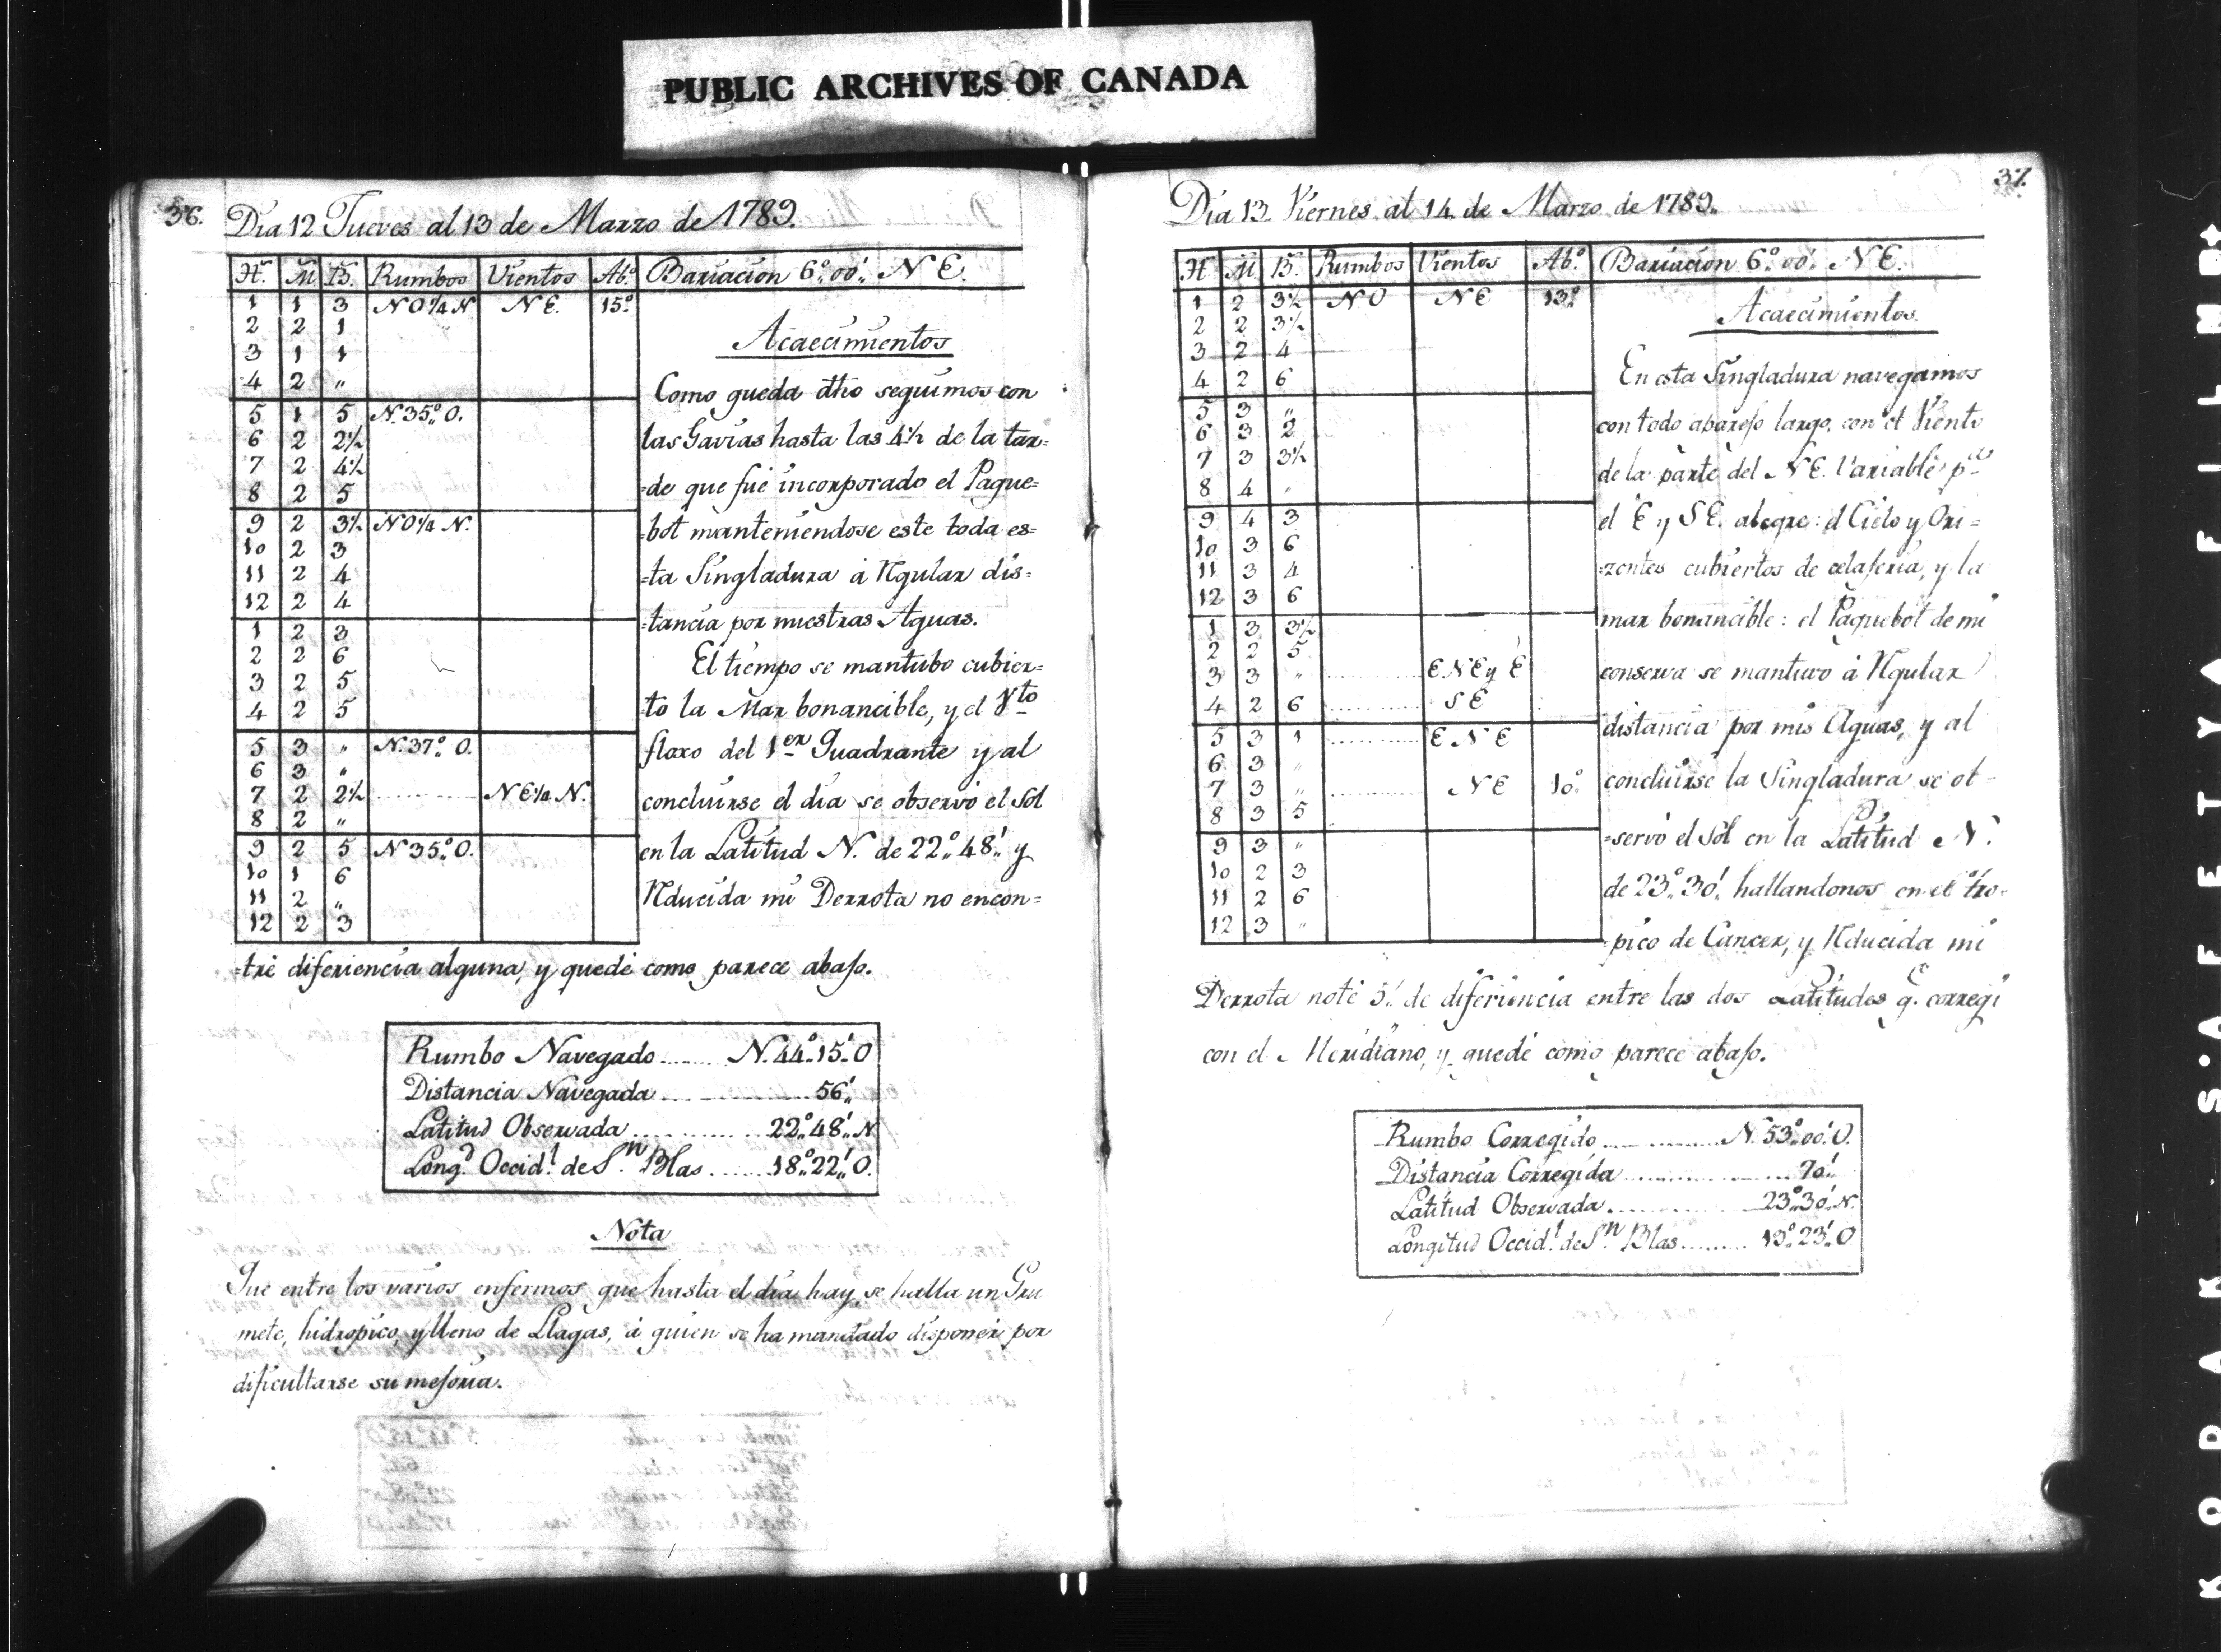 PUBLIC ARCHIVES OF CANADA
36.
Dia 12 Jueves al 13 de Marzo de 1789.
H.s M B. Rumbos Vientos Ab.o Bariacion 6.o 00' N E.
1 1 3 NO1/4N NE. 15.o
2 2 1
3 1 1
4 2 "
5 1 5 N.35.o O.
6 2 2½
7 2 4½
8 2 5
9 2 3½ NO1/4 N.
10 2 3
11 2 4
12 2 4
1 2 3
2 2 6
3 2 5
4 2 5
5 3 " N.37.o O.
6 3 "
7 2 2½ ........... NE1/4 N.
8 2 "
9 2 5 N35.o O.
10 1 6
11 2 "
12 2 3
Acaecimientos
Como queda dho seguimos con
las Gavias hasta las 4½ de la tar=
=de que fué incorporado el Paque=
=bot manteniendose este toda es=
=ta Singladura á Rgular dis=
=tancia por nuestras Aguas.
El tiempo se mantubo cubier=
=to la Mar bonancible, y el Vto
floxo del 1er Quadrante y al
concluirse el dia se observó el Sol
en la Latitud N. de 22.o 48' y
Rducida mi Derrota no encon=
=tré diferiencia alguna, y quedé como parece abajo.
Rumbo Navegado ....... N.44.o 15' O
Distancia Navegada ............... 56'
Latitud Observada ............ 22.o 48' N
Long.d Occid.l de S.n Blas ...... 18.o 22' O.
Nota
Que entre los varios enfermos que hasta el dia hay, se halla un Gru
mete, hidropico, y lleno de Llagas, á quien se ha mandado disponer por
dificultarse su mejoria.
37.
Dia 13 Viernes al 14 de Marzo de 1789.
H M B. Rumbos Vientos Ab.o Bariacion 6.o 00' NE.
1 2 3½ NO NE 13.o
2 2 3½
3 2 4
4 2 6
5 3 "
6 3 2
7 3 3½
8 4 "
9 4 3
10 3 6
11 3 4
12 3 6
1 3 3½
2 2 5
3 3 " ............ ENE y E
4 2 6 ............ SE
5 3 1 ............ ENE
6 3 "
7 3 " ............ NE 10.o
8 3 5
9 3 "
10 2 3
11 2 6
12 3 "
Acaecimientos.
En esta Singladura navegamos
con todo aparejo largo, con el Viento
de la parte del NE. Variable p.a
el E y SE. alegre: el Cielo y Ori=
=zontes cubiertos de celajeria, y la
mar bonancible: el Paquebot de mi
conserva se mantuvo á Rgular
distancia por mis Aguas, y al
concluirse la Singladura se ob=
=servó el Sol en la Latitud N.
de 23.o 30' hallandonos en el tro=
=pico de Cancer, y Rducida mi
Derrota noté 5' de diferiencia entre las dos Latitudes q.e corregi
con el Meridiano, y quedé como parece abajo.
Rumbo Corregido ............ N.53.o 00' O.
Distancia Corregida ................. 70'
Latitud Observada ............ 23.o 30' N.
Longitud Occid.l de S.n Blas ........ 19.o 23' O
KODAK S'AFETY FILM